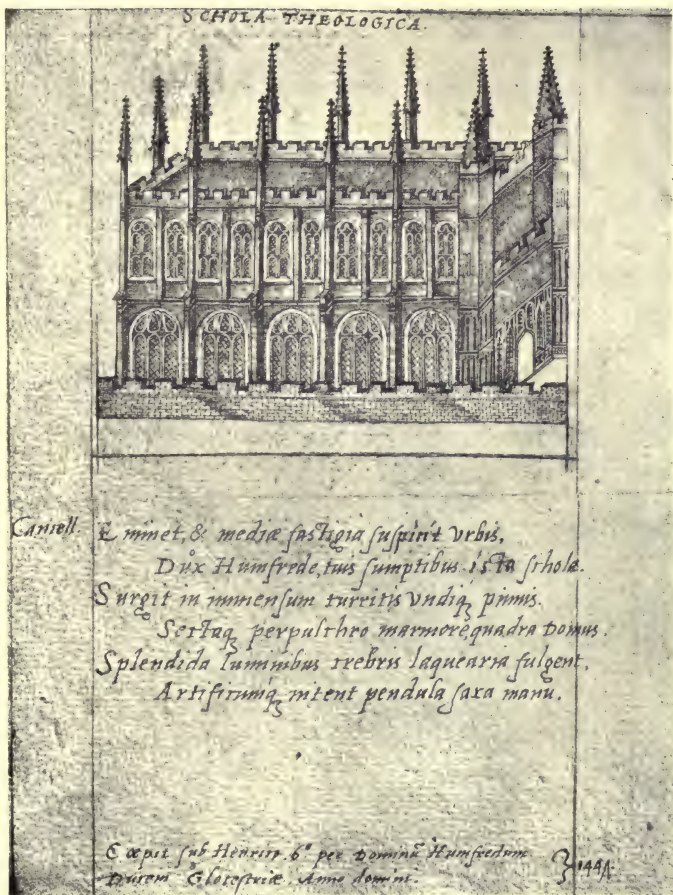 SCHOLA THEOLOGICA.
Cancell. Eminet, & mediæ fastigia suspicit Vrbis,
Dux Humfrede, tuis sumptibus ista schola.
Surgit in immensum turritis Vndiq, pinnis.
Sectaq, perpulchro marmore quadra Domus.
Splendida luminibus crebris laquearia fulgent,
Artificumq, nitent pendula saxa manu.
Cœpit sub Henrico 6º per Dominū Humfredum
Ducem Glocestriæ. Anno domini.